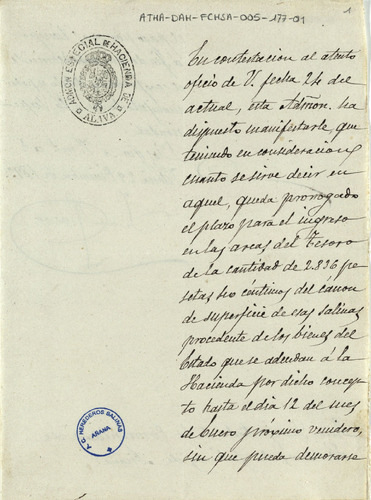 ATHA-DAH-FCHSA-005-177-01
1
ADMON ESPECIAL DE HACIENDA DE
ALAVA
En contestacion al atento
oficio de V. fecha 24 del
actual, esta Admon. ha
dispuesto manifestarle, que
teniendo en consideracion
cuanto se sirve decir en
aquel, queda prorrogado
el plazo para el ingreso
en las arcas del Tesoro
de la cantidad de 2.836 pe
setas 50 céntimos del cánon
de superficie de esas salinas
procedente de los bienes del
Estado que se adeudan á la
Hacienda por dicho concep
to hasta el dia 12 del mes
de Enero próximo venidero,
sin que pueda demorarse
F.C. HEREDEROS SALINAS
AÑANA